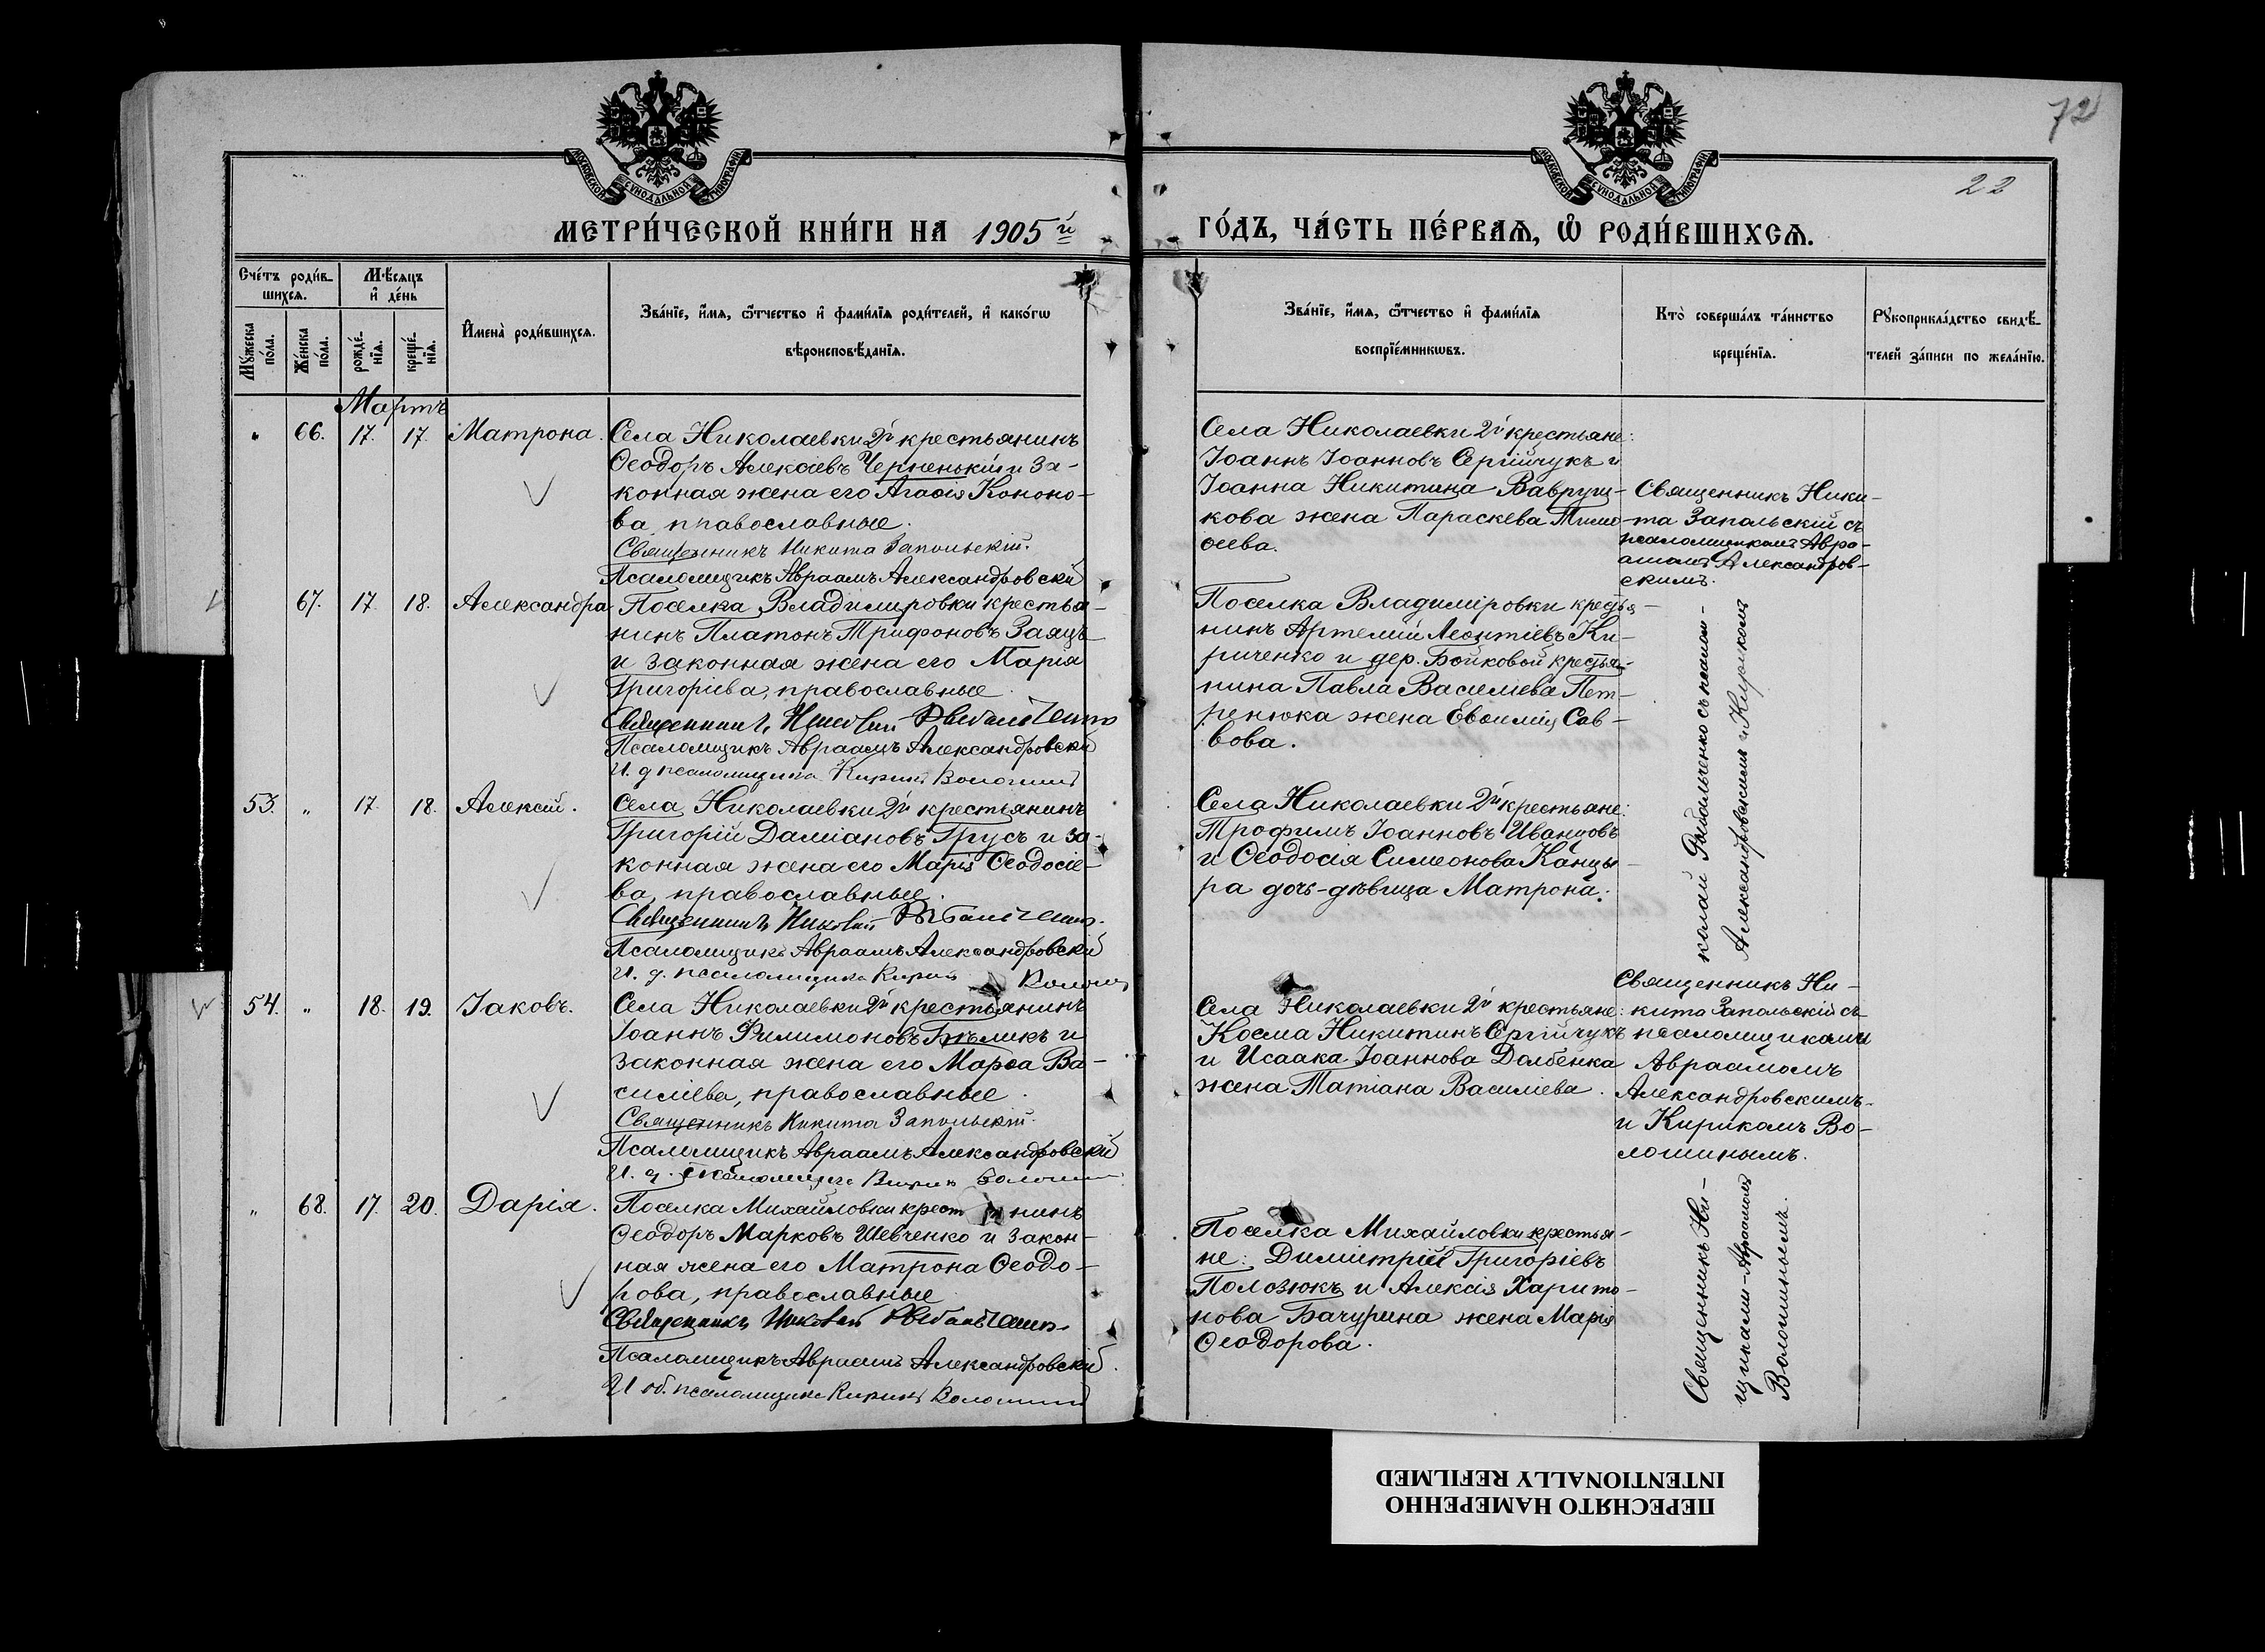 72
22
МОСКОВСКОЙ СѴНОДАЛЬНОЙ ТИПОГРАФІИ
МОСКОВСКОЙ СѴНОДАЛЬНОЙ ТИПОГРАФІИ
МЕТРИ́ЧЕСКОЙ КНИ́ГИ НА 1905й
ГО́ДЪ, ЧА́СТЬ ПЕ́РВАѦ, Ѡ҆ РОДИ́ВШИХСѦ.
Сче́тъ роди́в-
шихсѧ.
Мѣ́сѧцъ
и҆ де́нь
Мꙋ́жеска
по́ла.
Же́нска
по́ла.
рожде́-
нїѧ.
креще́-
нїѧ.
И҆мена̀ роди́вшихсѧ.
Зва́нїе, и҆́мѧ, ѻ҆́тчество и҆ фами́лїѧ роди́телей, и҆ како́гѡ
вѣроисповѣ́данїѧ.
Зва́нїе, и҆́мѧ, ѻ҆́тчество и҆ фами́лїѧ
воспрїе́мникѡвъ.
Кто̀ соверша́лъ та́инство
креще́нїѧ.
Рꙋкоприкла́дство свидѣ́-
телей за́писи по жела́нїю.
Мартъ
" 66. 17. 17. Матрона.
Села Николаевки 2й крестьянинъ
Ѳеодоръ Алексѣевъ Черненькій и за-
конная жена его Агаѳія Кононо-
ва, православные.
Священникъ Никита Запольскій.
Псаломщикъ Авраамъ Александровскій
Села Николаевки 2й крестьяне:
Іоаннъ Іоанновъ Сергійчукъ и
Іоанна Никитина Вавруш-
кова жена Параскева Тимо-
ѳеева.
Священникъ Ники-
та Запольскій съ
псаломщикомъ Авра-
амомъ Александров-
скимъ.
67. 17. 18. Александра
Поселка Владимировки крестья-
нинъ Платонъ Трифоновъ Заяцъ
и законная жена его Марія
Григоріева, православные.
Священникъ Николай Рыбальченко
Псаломщикъ Авраамъ Александровскій
И. д. псаломщика Кирикъ Волошинъ
Поселка Владиміровки кресть-
нинъ Артемій Леонтіевъ Ки-
риченко и дер. Бойковой крестья-
нина Павла Василіева Пет-
ренюка жена Евѳимія Сав-
вова.
колай Рыбальченко съ псалом-
Александровскимъ и Кирикомъ
53. " 17. 18. Алексій.
Села Николаевки 2й крестьянинъ
Григорій Даміановъ Грусъ и за-
конная жена его Марія Ѳеодосіе-
ва, православные.
Священникъ Николай Рыбальченко.
Псаломщикъ Авраамъ Александровскій
И. д. псаломщика Кирикъ Волошинъ
Села Николаевки 2й крестьяне:
Трофимъ Іоанновъ Иванцовъ
и Ѳеодосія Симеонова Канцы-
ра дочь-дѣвица Матрона.
54. " 18. 19. Іаковъ.
Села Николаевки 2й крестьянинъ
Іоаннъ Филимоновъ Бѣликъ и
законная жена его Марѳа Ва-
силіева, православные.
Священникъ Никита Запольскій.
Псаломщикъ Авраамъ Александровскій
И. д. псаломщика Кирикъ Волошинъ
Села Николаевки 2й крестьяне:
Косма Никитинъ Сергійчукъ
и Исаака Іоаннова Долбенка
жена Татіана Василіева.
Священникъ Ни-
кита Запольскій съ
псаломщиками
Авраамомъ
Александровскимъ
и Кирикомъ Во-
лошинымъ.
" 68. 17. 20. Дарія.
Поселка Михайловки крестьянинъ
Ѳеодоръ Марковъ Шевченко и закон-
ная жена его Матрона Ѳеодо-
рова, православные
Священникъ Николай Рыбальченко.
Псаломщикъ Авраамъ Александровскій.
И об. псаломщика Кирикъ Волошинъ
Поселка Михайловки крестья-
не: Димитрій Григоріевъ
Полозюкъ и Алексія Харито-
нова Бачурина жена Марія
Ѳеодорова.
Священникъ Ни-
щиками-Авраамомъ
Волошинымъ.
ПЕРЕСНЯТО НАМЕРЕННО
INTENTIONALLY REFILMED